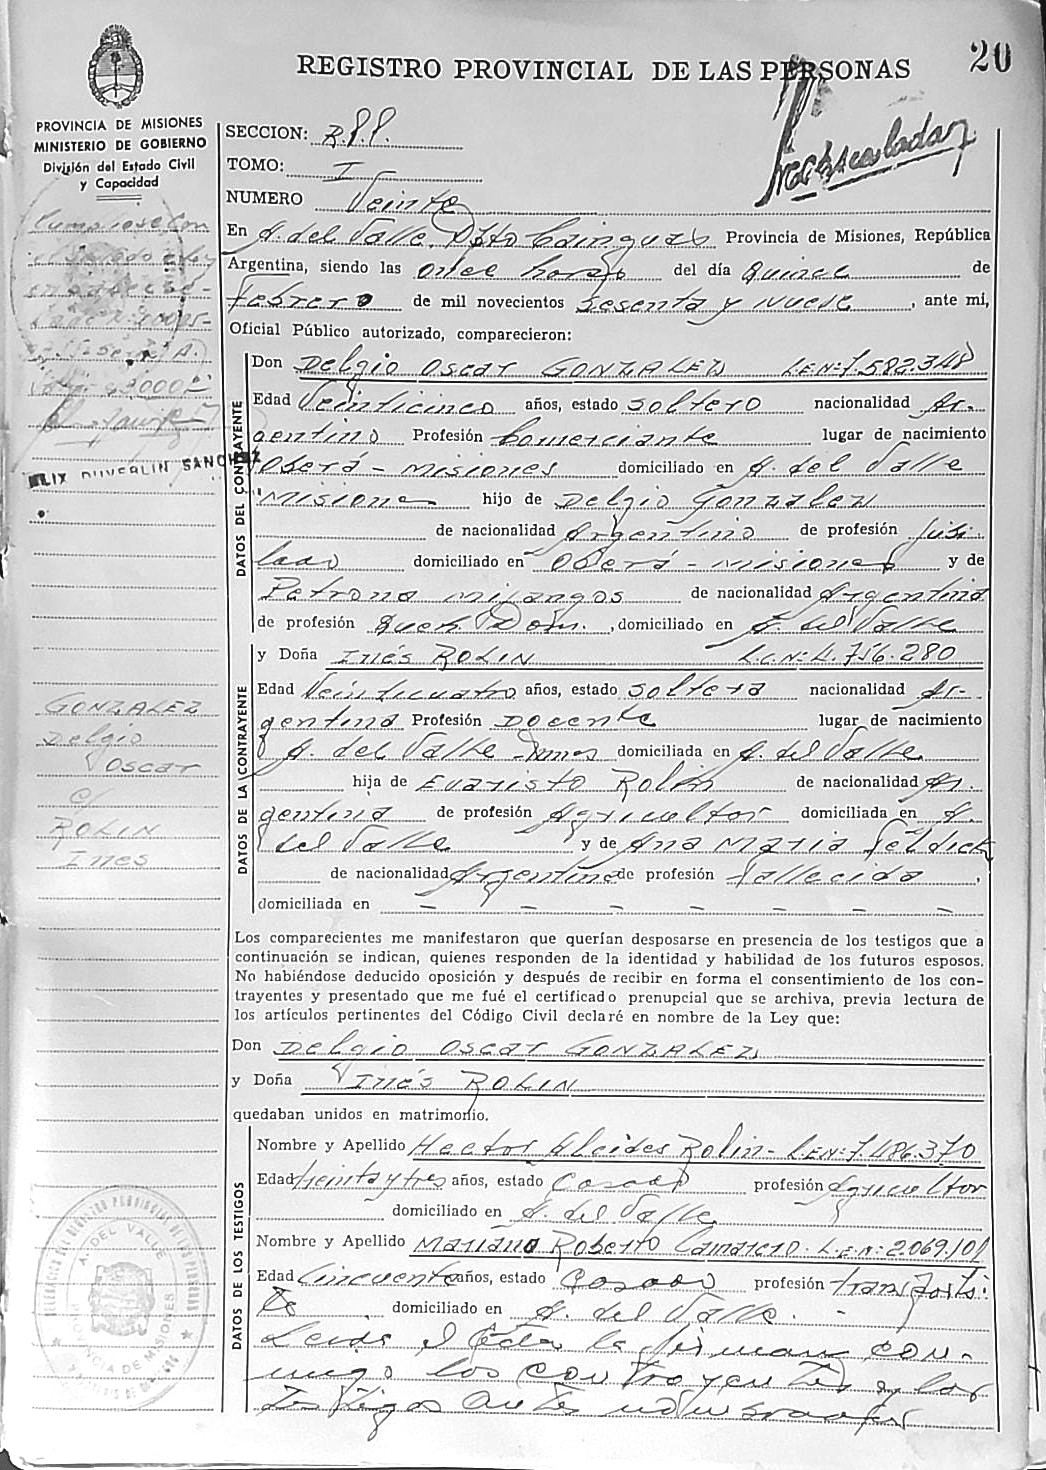 20
REGISTRO PROVINCIAL DE LAS PERSONAS
PROVINCIA DE MISIONES
MINISTERIO DE GOBIERNO
División del Estado Civil
y Capacidad
SECCION: R.P.P.
TOMO: I
NUMERO Veinte
En A. del Valle, Dpto Cainguas Provincia de Misiones, República
Argentina, siendo las once horas del día quince de
febrero de mil novecientos sesenta y nueve, ante mi,
Oficial Público autorizado, comparecieron:
DATOS DEL CONTRAYENTE
Don Delgio Oscar GONZALEZ L.E.Nº 7.582.348
Edad Veinticinco años, estado soltero nacionalidad Ar-
gentino Profesión Comerciante lugar de nacimiento
Oberá - Misiones domiciliado en A. del Valle
Misiones hijo de Delgio Gonzalez
de nacionalidad Argentino de profesión jubi-
lado domiciliado en Oberá - Misiones y de
Petrona Mijangos de nacionalidad Argentina
de profesión Queh. Dom., domiciliado en A. del Valle
DATOS DE LA CONTRAYENTE
y Doña Inés ROLIN L.C.Nº 4.756.280
Edad Veinticuatro años, estado soltera nacionalidad Ar-
gentina Profesión Docente lugar de nacimiento
A. del Valle - Mnes domiciliada en A. del Valle
hija de Evaristo Rolin de nacionalidad Ar-
gentina de profesión Agricultor domiciliada en A.
del Valle y de Ana Maria
de nacionalidad Argentina de profesión fallecida,
domiciliada en - - - - - - -
Los comparecientes me manifestaron que querían desposarse en presencia de los testigos que a
continuación se indican, quienes responden de la identidad y habilidad de los futuros esposos.
No habiéndose deducido oposición y después de recibir en forma el consentimiento de los con-
trayentes y presentado que me fué el certificado prenupcial que se archiva, previa lectura de
los artículos pertinentes del Código Civil declaré en nombre de la Ley que:
Don Delgio Oscar GONZALEZ
y Doña Inés ROLIN
quedaban unidos en matrimonio.
DATOS DE LOS TESTIGOS
Nombre y Apellido Hector Alcides Rolin - L.E.Nº 7.486.370
Edad treinta y tres años, estado Casado profesión Agricultor
domiciliado en A. del Valle
Nombre y Apellido Mariano Roberto Camarero - L.E.Nº 2.069.101
Edad Cincuenta años, estado Casado profesión transportis-
ta domiciliado en A. del Valle. -
Leida el Acta la firman con-
migo los contrayentes y los
testigos antes
GONZALEZ
Delgio
Oscar
c/
ROLIN
Ines
A. DEL VALLE
PROVINCIA DE MISIONES